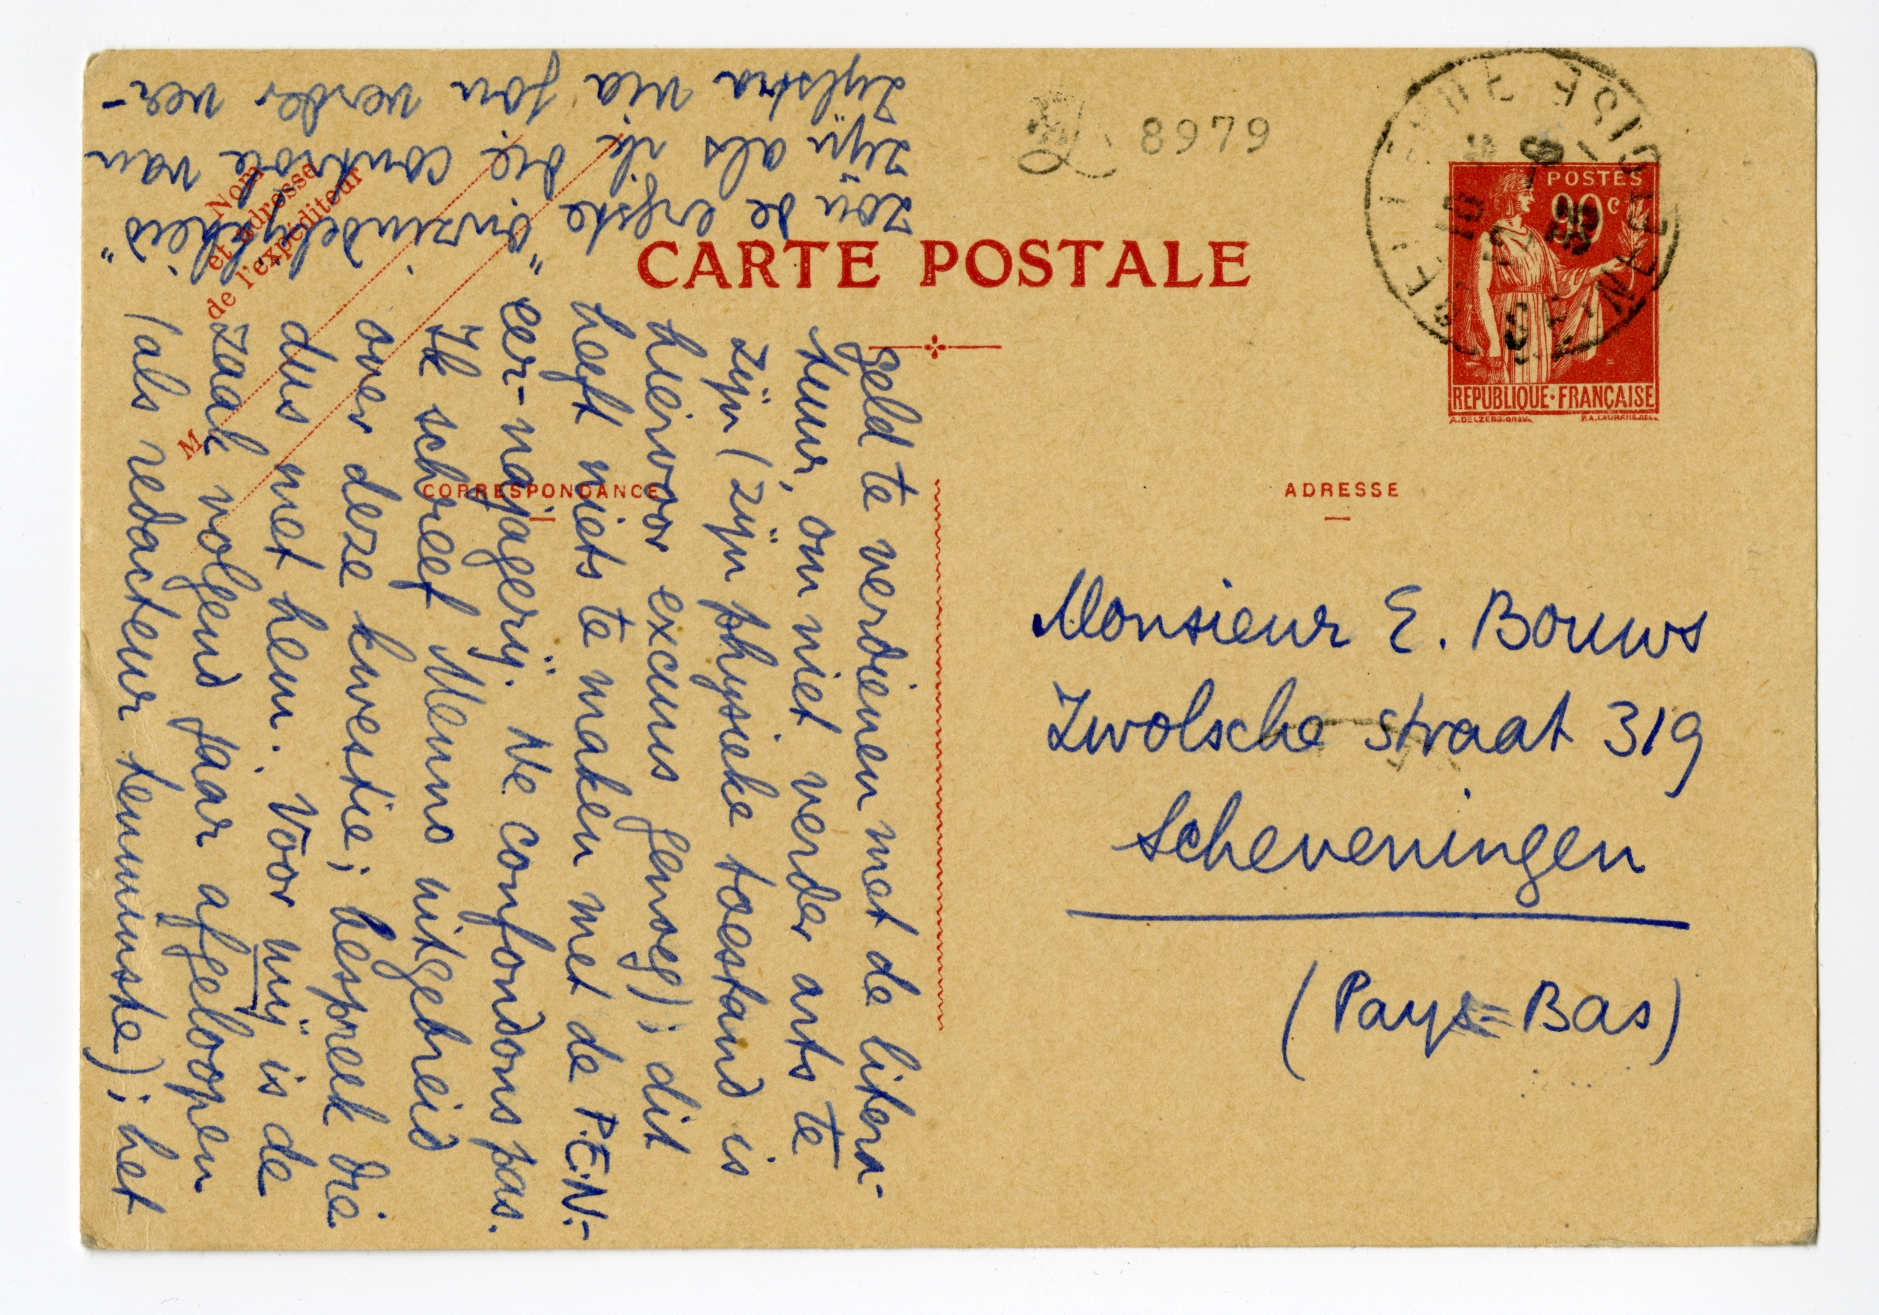 8979
POSTES
90 c
REPUBLIQUE·FRANÇAISE
CARTE POSTALE
Nom
et adresse
de l'expéditeur
M
CORRESPONDANCE
ADRESSE
Monsieur E. Bouws
Zwolsche straat 319
Scheveningen
(Pays-Bas)
geld te verdienen met de litera-
tuur, om niet verder arts te
zijn (zijn physieke toestand is
hiervoor excuus genoeg); dit
heeft niets te maken met de P.E.N.-
eer-najagerij. Ne confondons pas.
Ik schreef Menno uitgebreid
over deze kwestie; bespreek die
dus met hem. Voor mij is de
zaak volgend jaar afgeloopen
(als redacteur tenminste); het
zou de ergste "onzindelijkheid"
zijn als ik die controle van
Zylstra via jou verder ver-